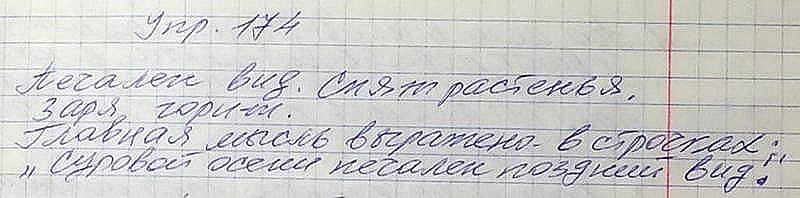 Упр. 174
Печален вид. Спят растенья.
Заря горит.
Главная мысль выражено в строчках:
„Суровой осени печален поздний вид."